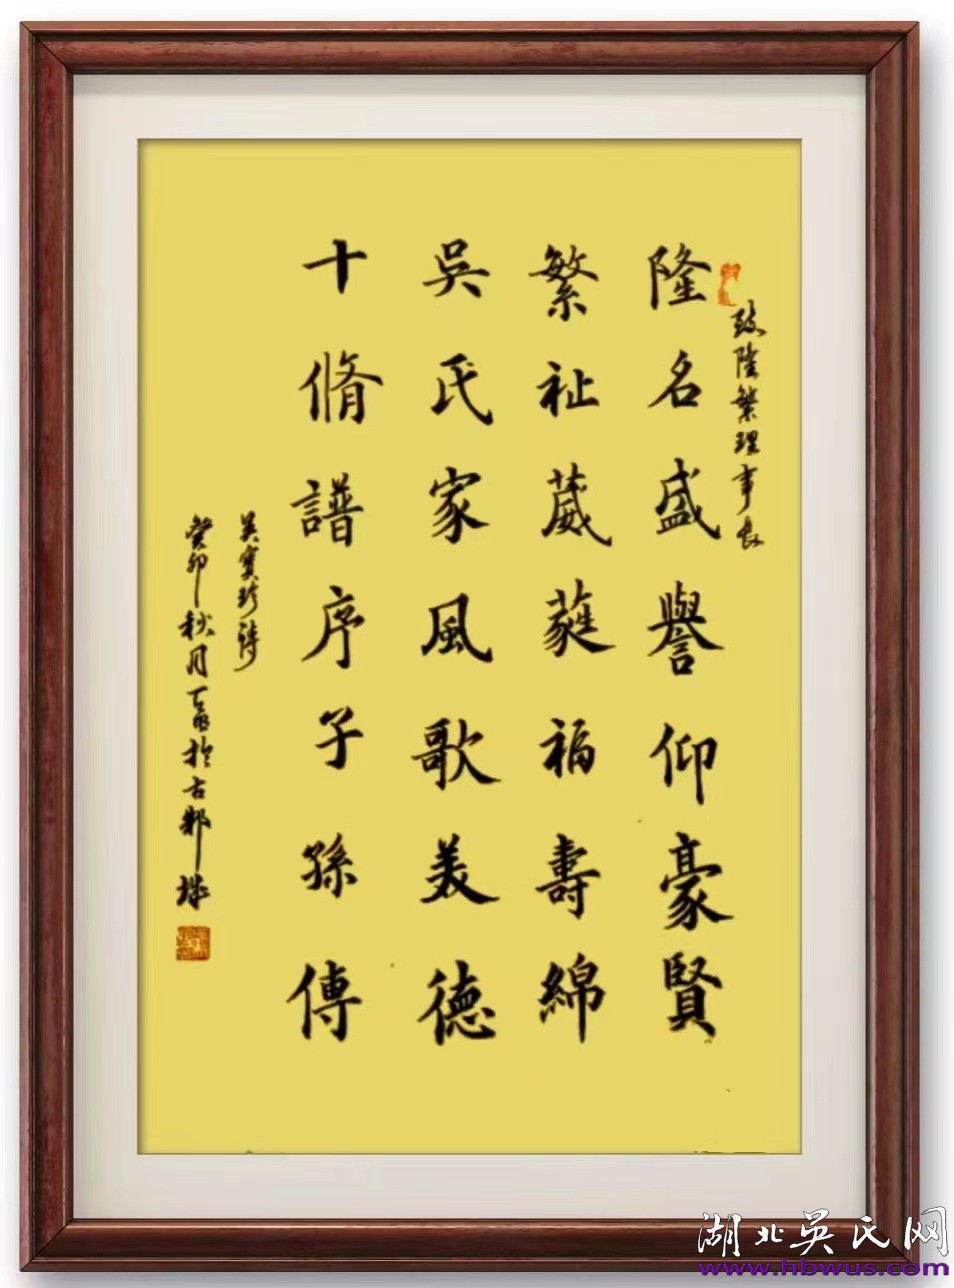 致隆繁理事長
隆名盛譽仰豪賢
繁祉葳蕤福壽綿
吳氏家風歌美德
十脩譜序子孫傳
吴寶珍詩
癸卯秋月 於古鄴城
湖北吳氏网
www.hbwus.com